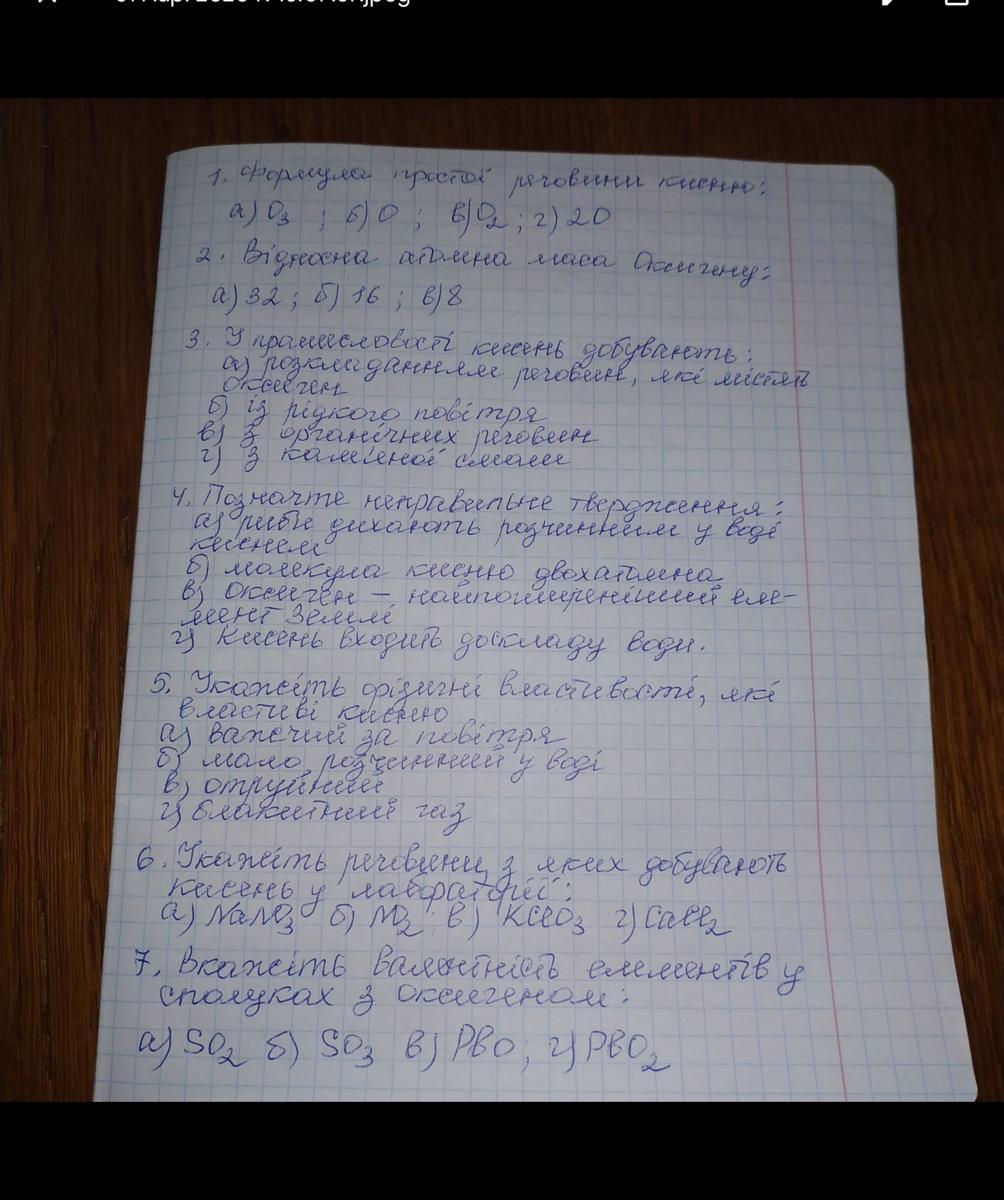 1. Формула простої речовини кисню:
а) O3 ; б) O ; в) O2 ; г) 2O
2. Відносна атомна маса Оксигену:
а) 32 ; б) 16 ; в) 8
3. У промисловості кисень добувають:
а) розкладанням речовин, які містять
оксиген
б) із рідкого повітря
в) з органічних речовин
г) з кам'яної смоли
4. Позначте неправильне твердження:
а) риби дихають розчинним у воді
киснем
б) молекула кисню двохатомна
в) Оксиген – найпоширеніший еле-
мент Землі
г) Кисень входить доскладу води.
5. Укажіть фізичні властивості, які
властиві кисню
а) важчий за повітря
б) мало розчинний у воді
в) отруйний
г) блакитний газ
6. Укажіть речовини, з яких добувають
кисень у лабораторії:
а) NaNO3 б) NO2 в) KClO3 г) CaCl2
7. Вкажіть валентність елементів у
сполуках з оксигеном:
а) SO2 б) SO3 в) PbO ; г) PbO2